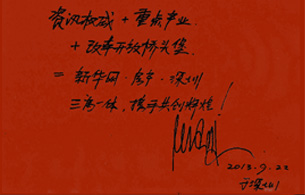 资讯权威 + 重点产业
+ 改革开放桥头堡
= 新华网·房产·深圳
三为一体,携手共创辉煌!
2013.9.22
于深圳